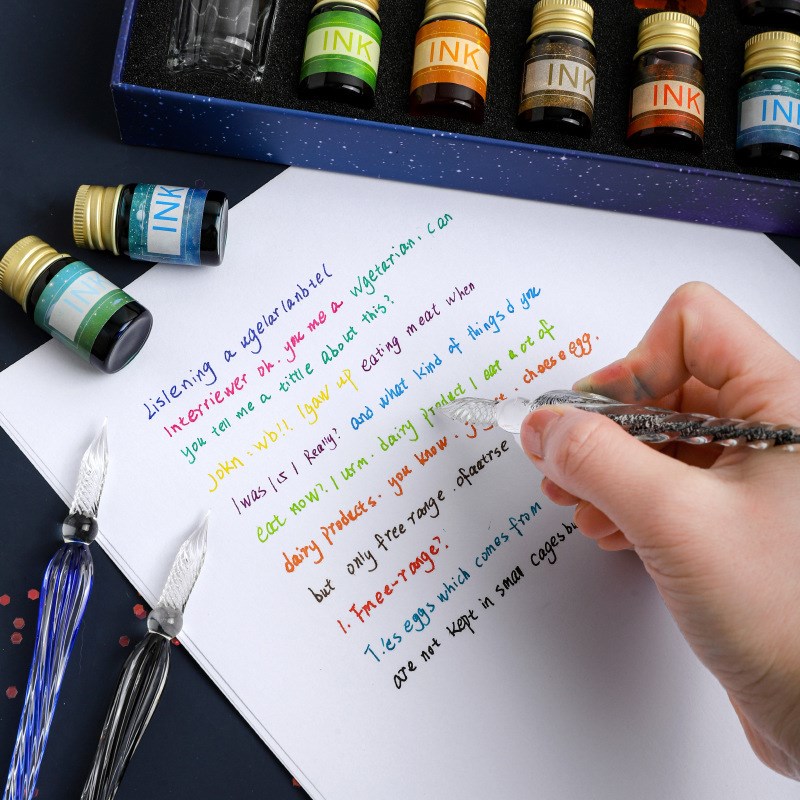 INK
INK
INK
INK
INK
INK
INK
Listening a
Interviewer oh. you me a vgetarian, can
you tell me a tittle about this?
John : wb!!. Igaw up eating meat when
I was 1s I Really? and what kind of things d you
eat now?. I urm. dairy product I eat a ot of
dairy products. you know . choese egg.
but only free range .ofaatrse
1. Fmee-range?
T.'es eggs which comes from
are not kept in small cages bu